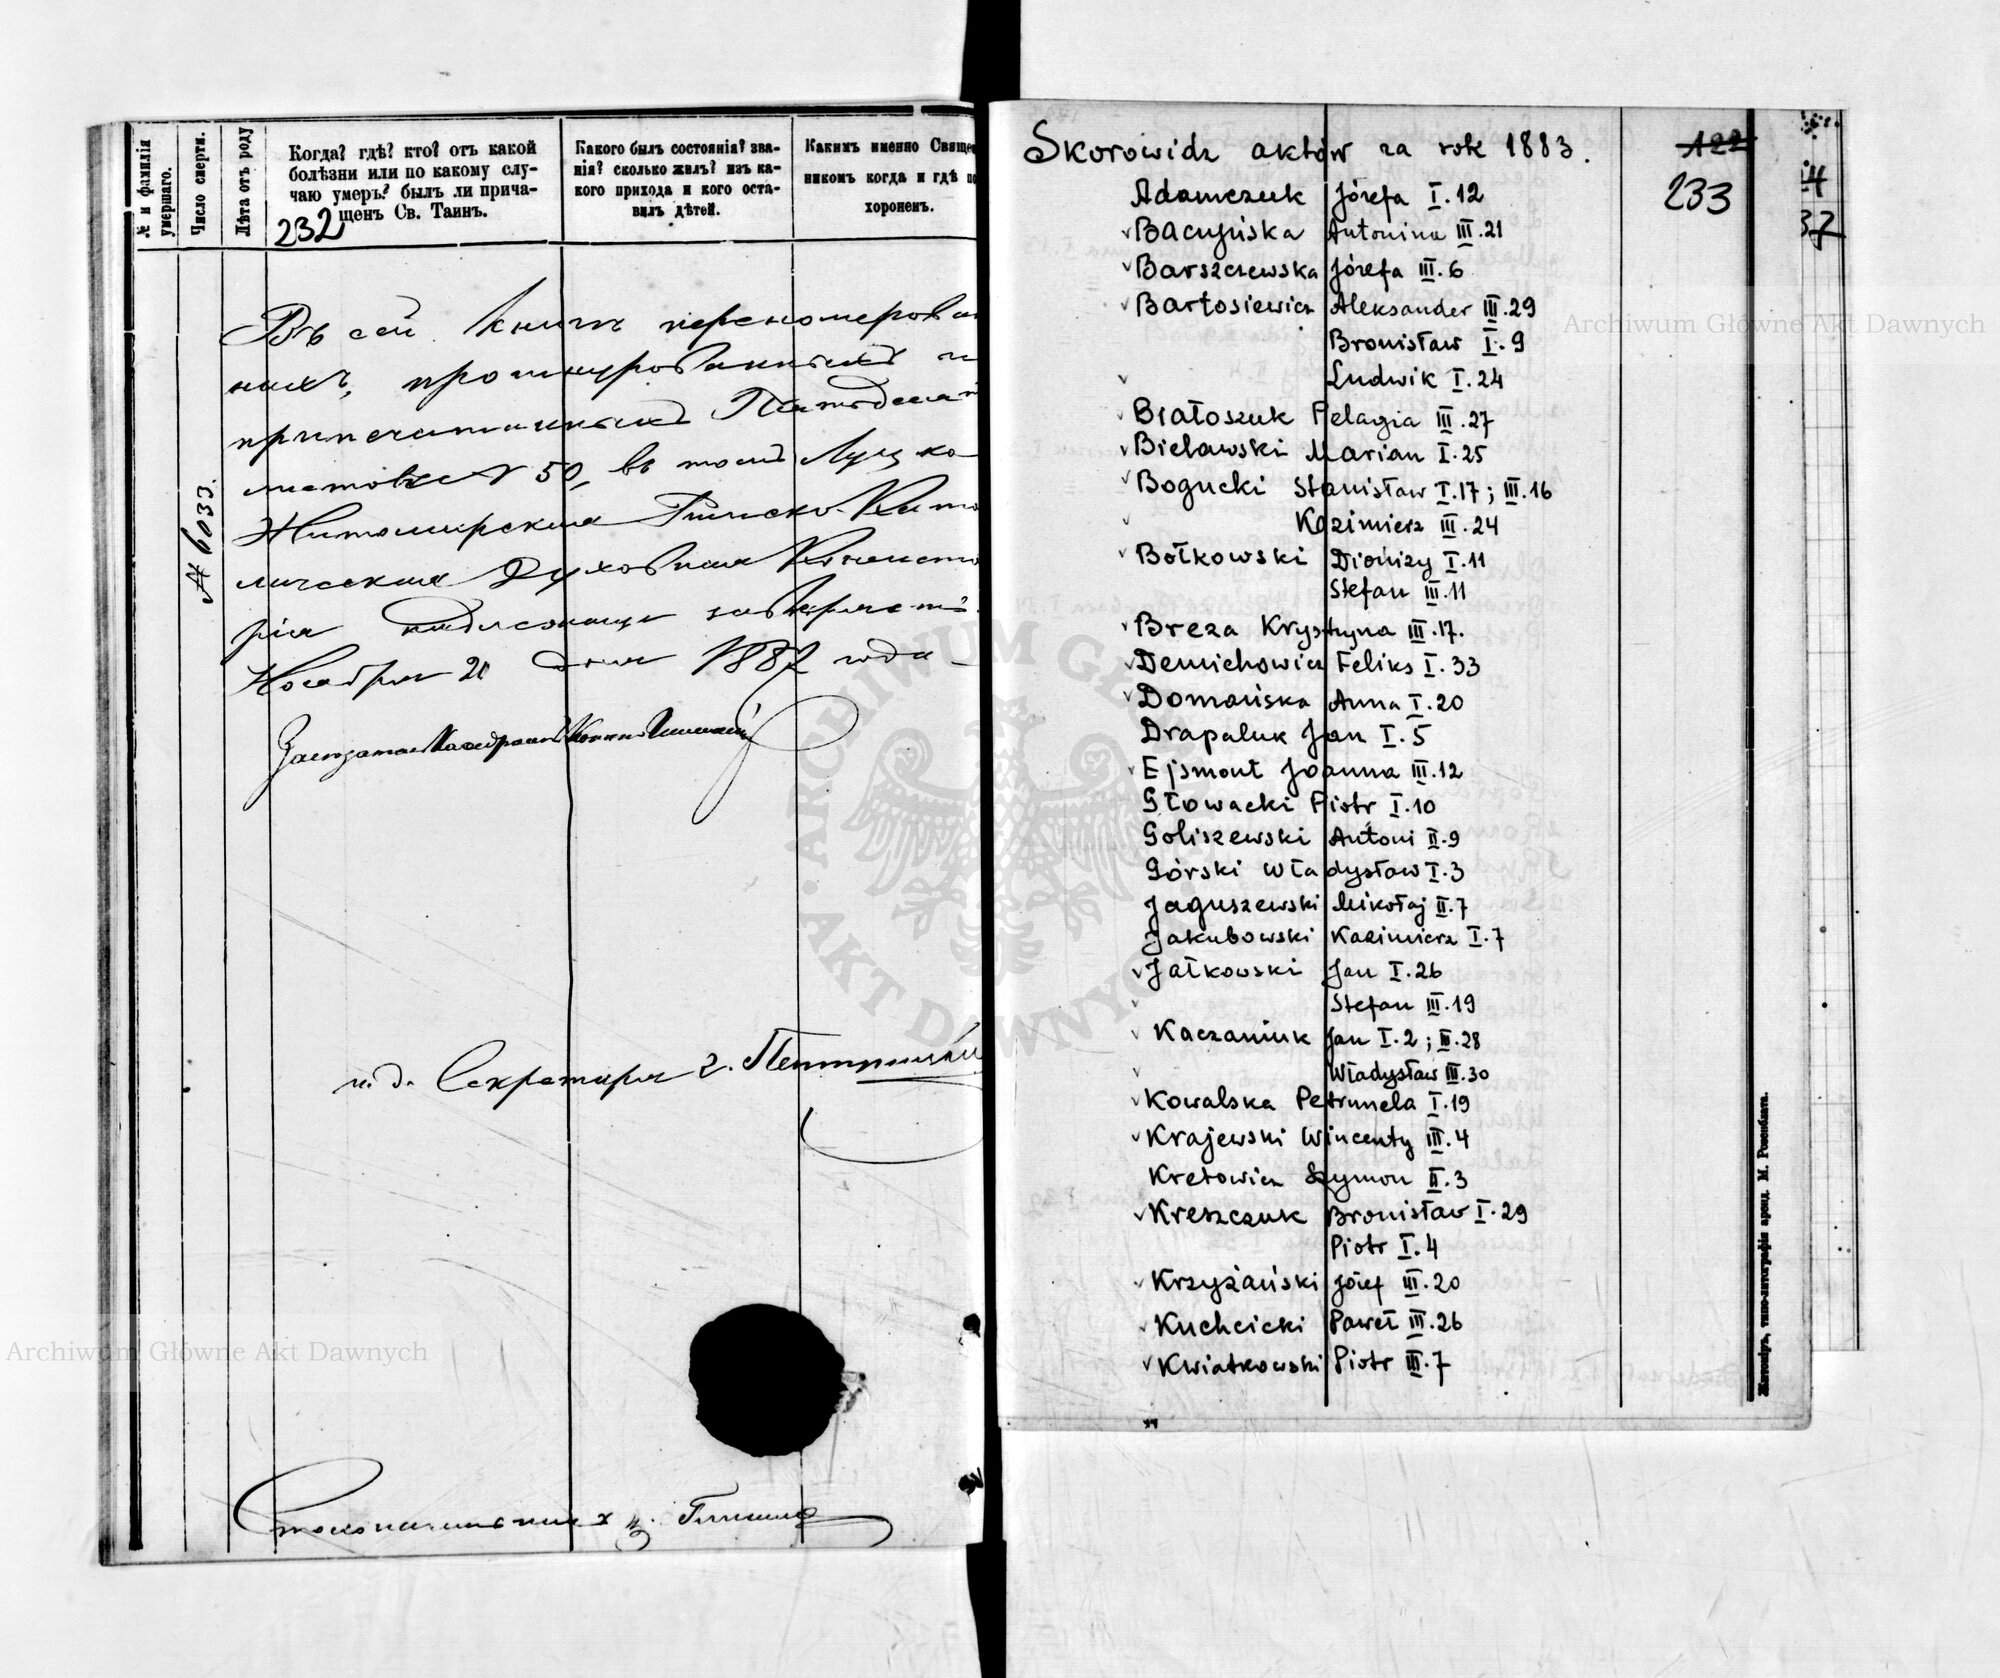 № и фамилія умершаго.
Число смерти.
Лѣта отъ роду
Когда? гдѣ? кто? отъ какой
болѣзни или по какому слу-
чаю умеръ? былъ ли прича-
щенъ Св. Таинъ.
Какого былъ состоянія? зва-
нія? сколько жилъ? изъ ка-
кого прихода и кого оста-
вилъ дѣтей.
Какимъ именно Свяще
никомъ когда и гдѣ по
хороненъ.
232
№ 6033.
Въ сей книгѣ перенумерован
ныхъ, прошнурованныхъ и
припечатанныхъ Пятьдесят
листовъ № 50, въ томъ Луцко
Житомирская Римско-Като
лическая Духовная Консисто
рія надлежаще
Ноября 20 дня 1882 года
и. д. Секретаря
Столоначальник
Skorowidz aktów za rok 1883.
122
233
Adamczuk Józefa I.12
Baczyńska Antonina III.21
Barszczewska Józefa III.6
Bartosiewicz Aleksander III.29
Bronisław I.9
Ludwik I.24
Białoszuk Pelagia III.27
Bielawski Marian I.25
Bogucki Stanisław I.17; III.16
Kazimierz III.24
Bołkowski Dionizy I.11
Stefan III.11
Breza Krystyna III.17.
Demichowicz Feliks I.33
Domańska Anna I.20
Drapaluk Jan I.5
Ejsmont Joanna III.12
Głowacki Piotr I.10
Goliszewski Antoni II.9
Górski Władysław I.3
Jaguszewski Mikołaj II.7
Jakubowski Kazimierz I.7
Jałkowski Jan I.26
Stefan III.19
Kaczaniuk Jan I.2; III.28
Władysław III.30
Kowalska Petrunela I.19
Krajewski Wincenty III.4
Kretowicz Szymon II.3
Kreszczuk Bronisław I.29
Piotr I.4
Krzyżański Józef III.20
Kuchcicki Paweł III.26
Kwiatkowski Piotr III.7
Житоміръ, типо-литографія аренд. М. Розенблата.
37
Archiwum Główne Akt Dawnych
Archiwum Główne Akt Dawnych